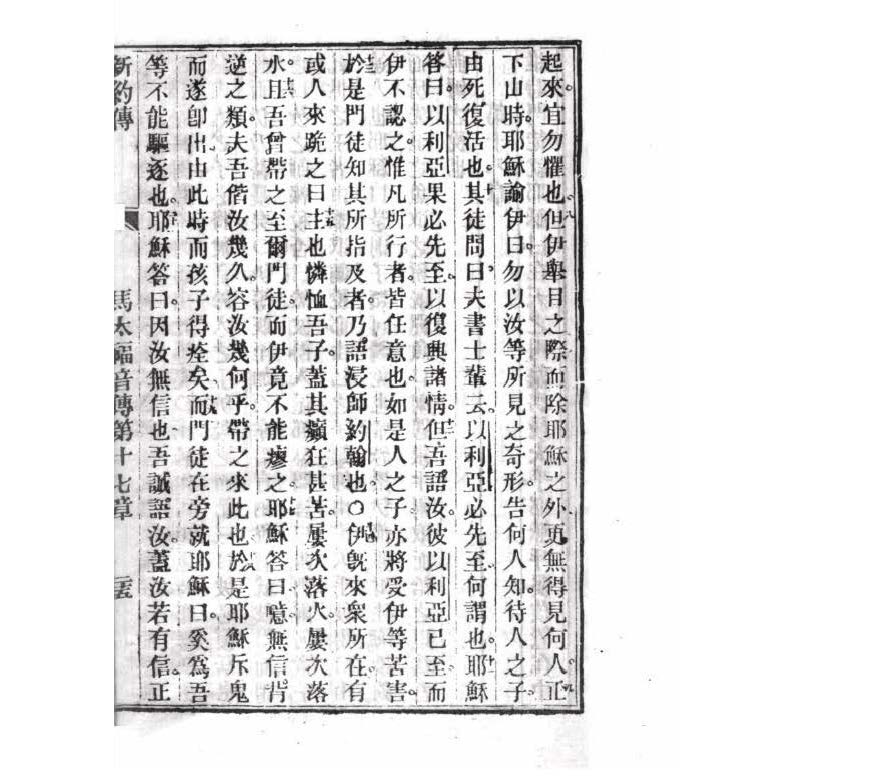 起來。宜勿懼也。八但伊舉目之際而除耶穌之外。更無得見何人。九正
下山時。耶穌諭伊曰。勿以汝等所見之奇形。告何人知。待人之子。
由死復活也。十其徒問曰。夫書士輩云。以利亞必先至。何謂也。十一耶穌
答曰。以利亞果必先至。以復興諸情。十二但吾語汝。彼以利亞已至。而
伊不認之。惟凡所行者。皆任意也。如是人之子亦將受伊等苦害。
十三於是門徒知其所指及者。乃語浸師約翰也。○十四伊旣來衆所在。有
或人來跪之曰。十五主也憐恤吾子。蓋其癲狂甚苦。屢次落火。屢次落
水。十六且吾曾帶之至爾門徒。而伊竟不能瘳之。十七耶穌答曰。噫無信背
逆之類。夫吾偕汝幾久。容汝幾何乎。帶之來此也。十八於是耶穌斥鬼
而遂卽出。由此時而孩子得痊矣。十九而門徒在旁就耶穌曰。奚爲吾
等不能驅逐也。二十耶穌答曰。因汝無信也。吾誠語汝。蓋汝若有信。正
新約傳 馬太福音傳第十七章 二五